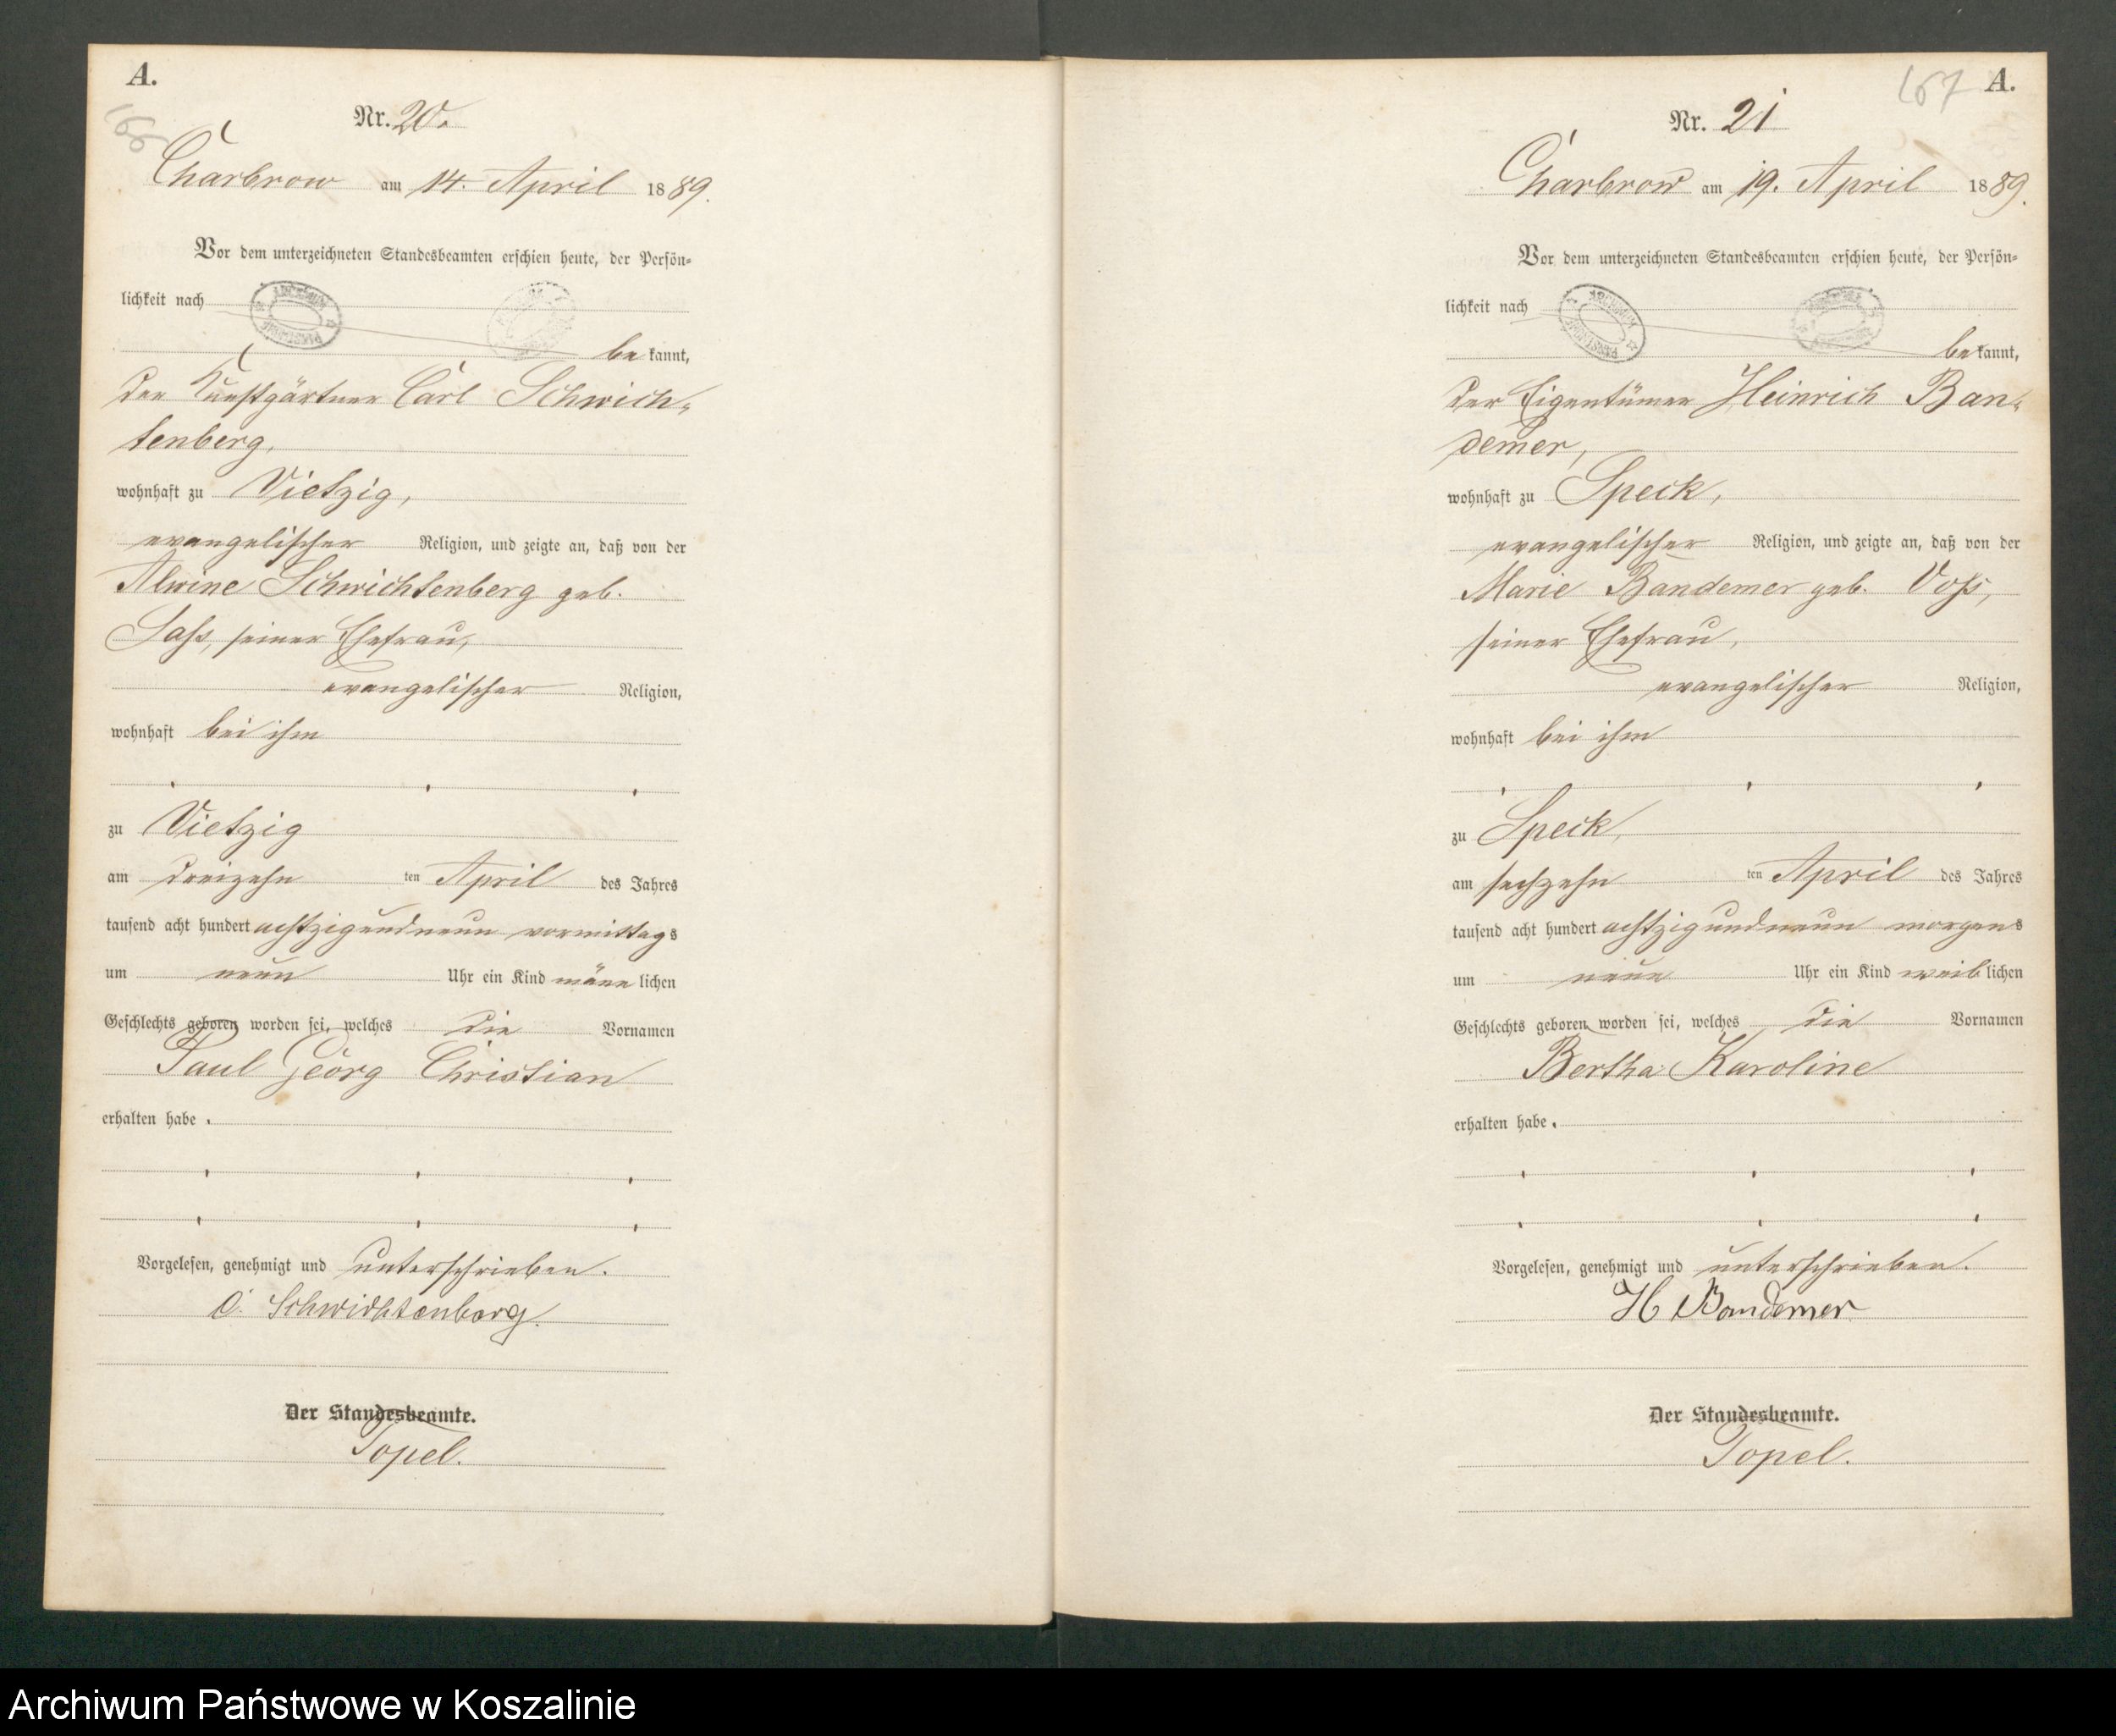 A.
Nr. 20.
Charbrow am 14. April 1889.
Vor dem unterzeichneten Standesbeamten erschien heute, der Persön-
lichkeit nach
bekannt,
der Kunstgärtner Carl Schwich-
tenberg,
wohnhaft zu Vietzig,
evangelischer Religion, und zeigte an, daß von der
Alwine Schwichtenberg geb.
Sass, seiner Ehefrau,
evangelischer Religion,
wohnhaft bei ihm
zu Vietzig
am dreizehn ten April des Jahres
tausend acht hundert achtzigundneun vormittags
um neun Uhr ein Kind männlichen
Geschlechts geboren worden sei, welches die Vornamen
Paul Georg Christian
erhalten habe.
Vorgelesen, genehmigt und unterschrieben.
C. Schwichtenberg.
Der Standesbeamte.
Topel.
167 A.
Nr. 21
Charbrow am 19. April 1889.
Vor dem unterzeichneten Standesbeamten erschien heute, der Persön-
lichkeit nach
bekannt,
der Eigentümer Heinrich Ban-
demer,
wohnhaft zu Speck,
evangelischer Religion, und zeigte an, daß von der
Marie Bandemer geb. Voss,
seiner Ehefrau,
evangelischer Religion,
wohnhaft bei ihm
zu Speck,
am sechzehn ten April des Jahres
tausend acht hundert achtzigundneun morgens
um neun Uhr ein Kind weiblichen
Geschlechts geboren worden sei, welches die Vornamen
Bertha Karoline
erhalten habe.
Vorgelesen, genehmigt und unterschrieben.
H Bandemer
Der Standesbeamte.
Topel.
Archiwum Państwowe w Koszalinie